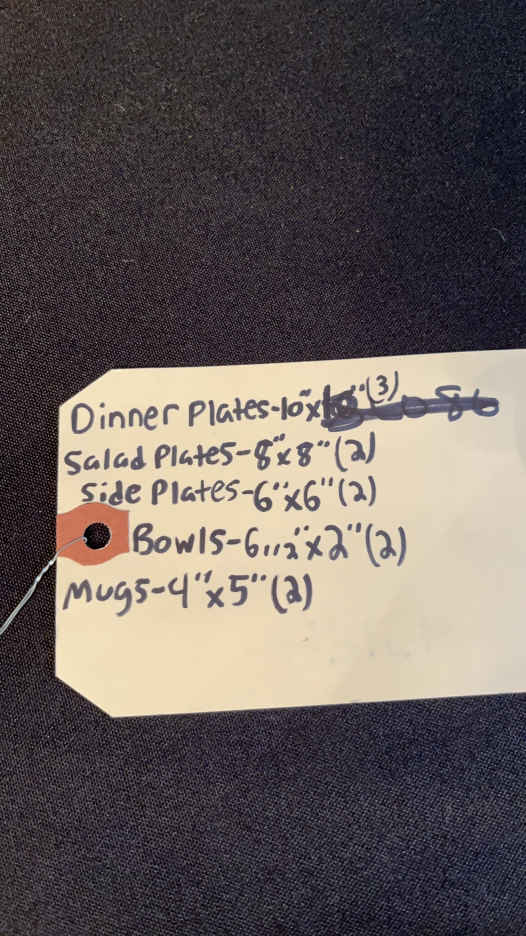 Dinner Plates-10"x10" (3)
Salad Plates-8"x8" (2)
Side Plates-6"x6" (2)
Bowls-6 1/2"x2" (2)
Mugs-4"x5" (2)